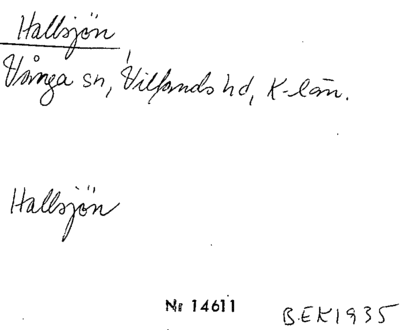 Hallsjön
Vånga sn, Villands hd, K-län.
Hallsjön
Nr 14611
BEK1935